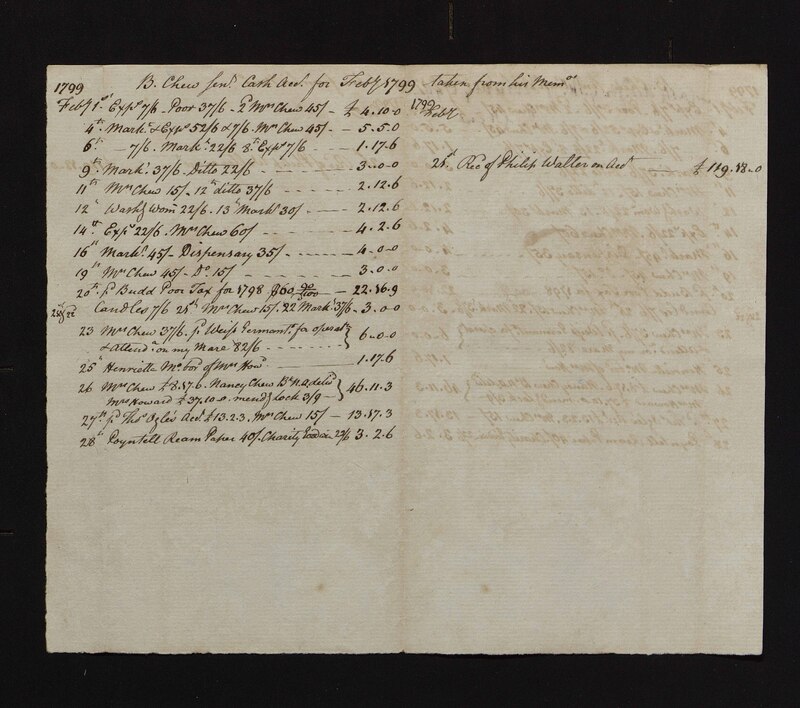 1799 B. Chew Senr. Cash Acct. for Feby 1799 taken from his Memo
Feby 1st. Exps 7/6 - Poor 37/6 - pd Mrs Chew 45/ - £ 4.10.0
4th Markt. & Exps 52/6 & 7/6 Mrs Chew 45/ - 5.5.0
6th - 7/6. Markt. 22/6 8th Exps 7/6 - 1.17.6
9th Markt. 37/6. Ditto 22/6 - 3..0.0
11th Mrs Chew 15/. 12th ditto 37/6 - 2.12.6
12th Washg Wom 22/6. 13th Markt. 30/ - 2.12.6
14th. Exps 22/6. Mrs Chew 60/ - 4.2.6
16th Markt. 45/. Dispensary 35/ - 4.0.0
19th Mrs Chew 45/. Do. 15/ - 3.0.0
20th. pd Budd Poor Tax for 1798 $60 90/100 - 22.16.9
21st & 22 Candles 7/6 21st Mrs Chew 15/. 22 Markt. 37/6 - 3.0.0
23 Mrs Chew 37/6. pd Weiss Germant. for operat
& Attend.ce on my Mare 82/6 - 6.0.0
25th Henrietta for of Mrs How - 1.17.6
26 Mrs Chew £8.17.6. Nancy Chew
Mrs Howard £37.10.0. mendg Lock 3/9 - 46.11.3
27th. pd Thos. Ogle's Acct. £13.2.3. Mrs Chew 15/ - 13.17.3
28th Poyntell Ream Paper 40/. Charity 22/6 3.2.6
1799
Feby
21st Recd of Philip Walter on Acct - £ 119.18.0